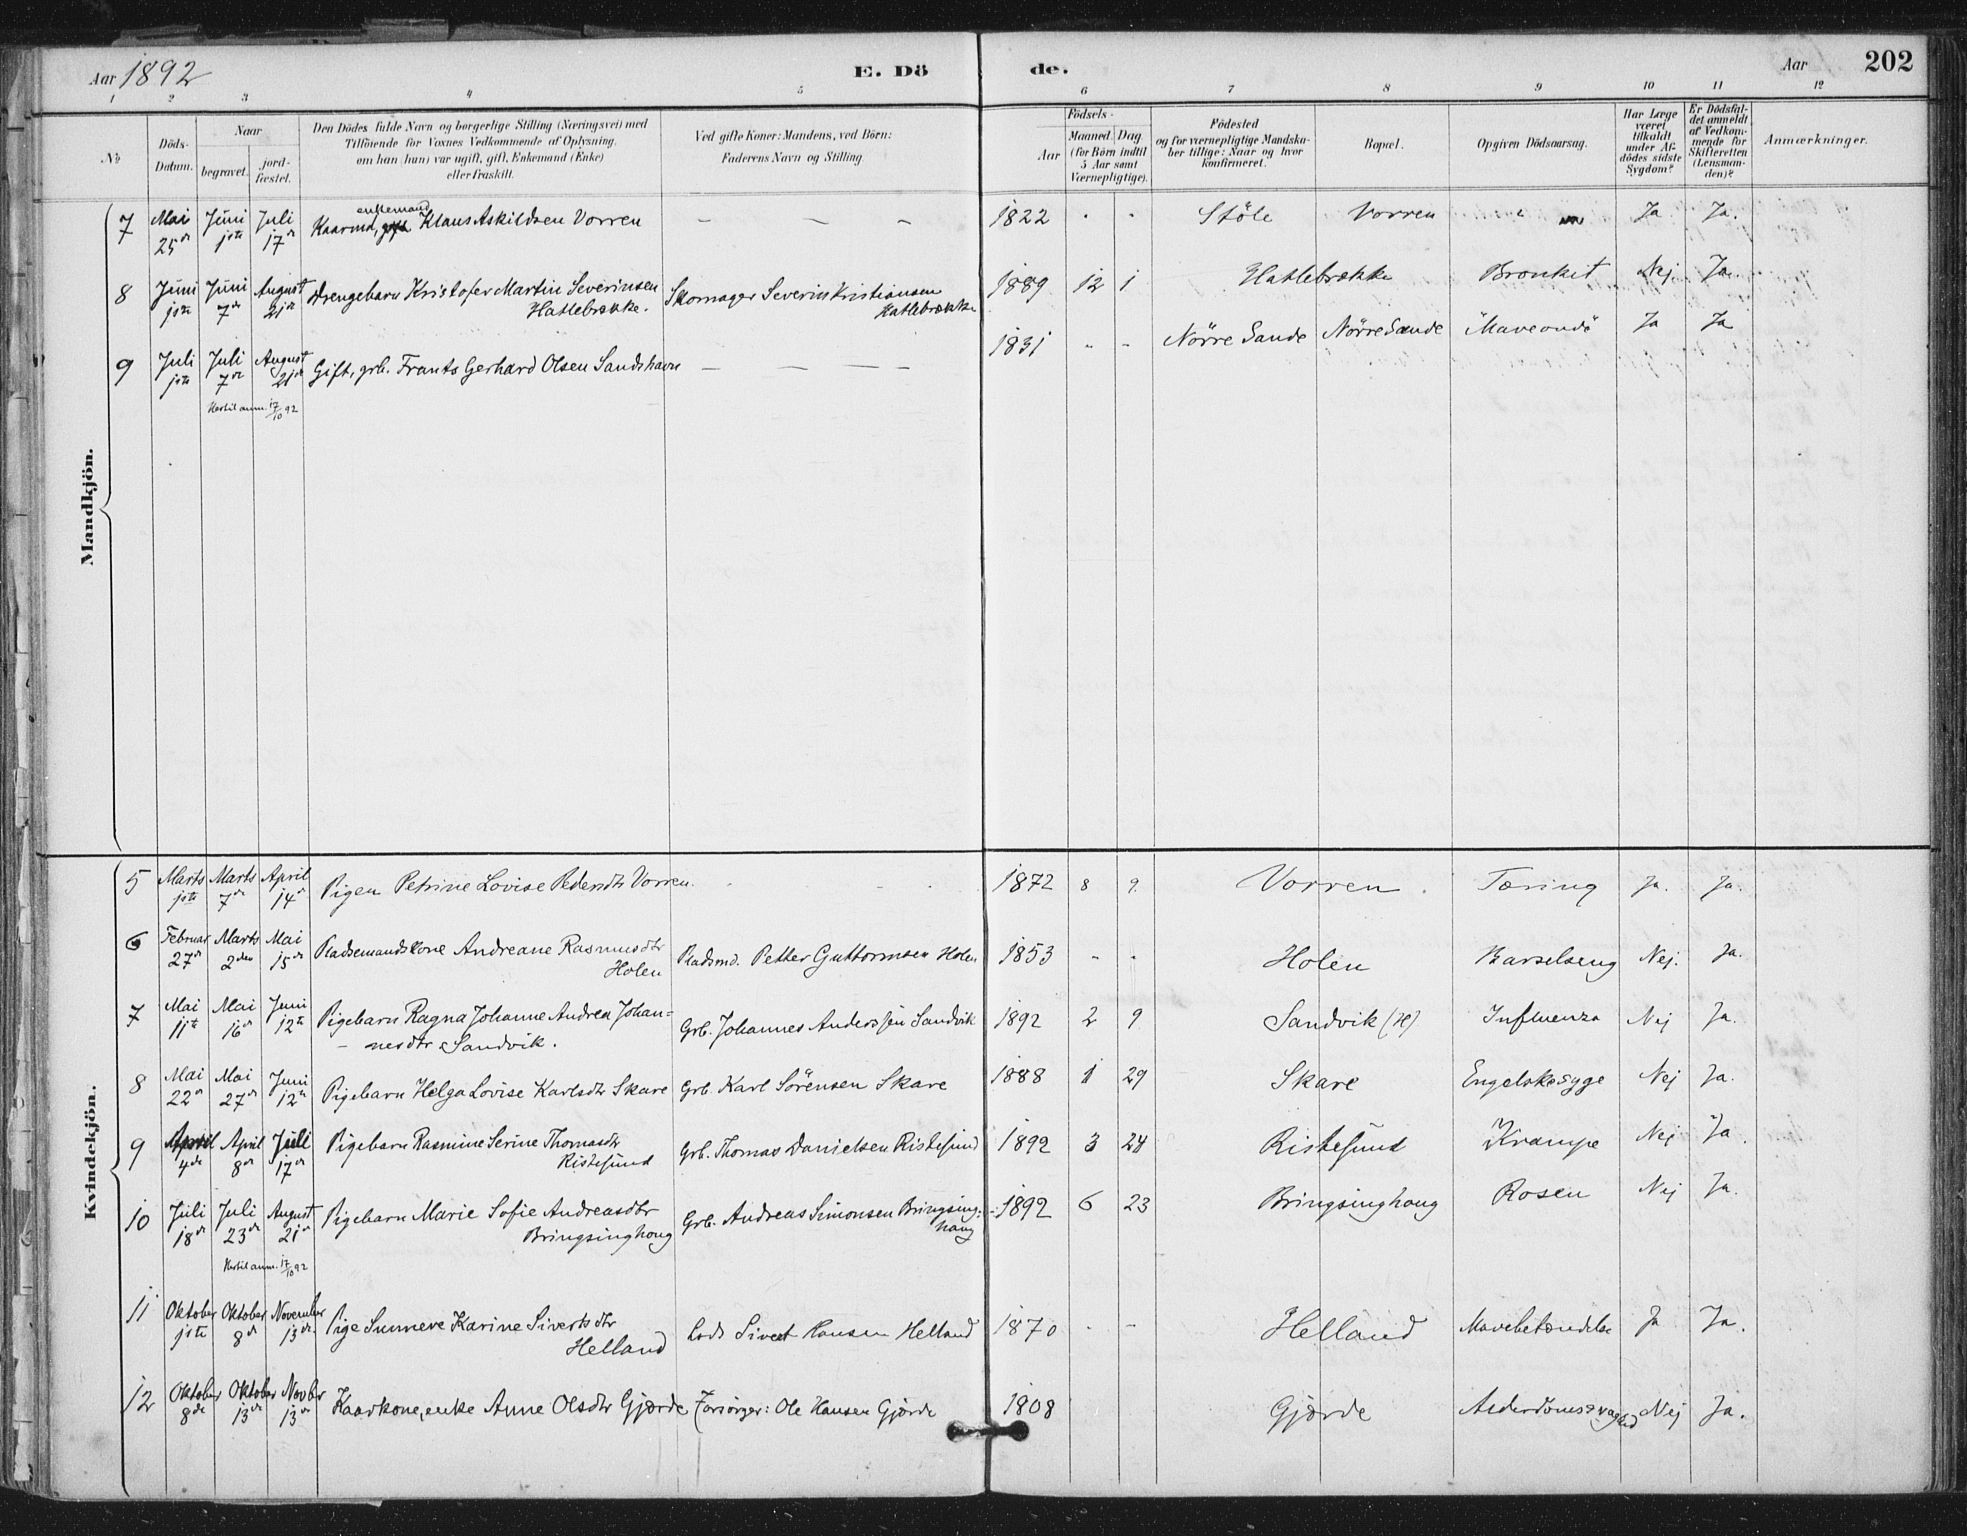 Aar 1892 E. Dö de. Aar 202
1 2 3 4 5 6 7 8 9 10 11 12
No
Döds-Datum.
Naar
begravet.
jordfæstet.
Den Dödes fulde Navn og borgerlige Stilling (Næringsvei) med
Tilföiende for Voxnes Vedkommende af Oplysning.
om han (hun) var ugift, gift, Enkemand (Enke)
eller fraskilt.
Ved gifte Koner: Mandens, ved Börn:
Faderens Navn og Stilling.
Födsels-
Aar
Maaned. Dag.
(for Börn indtil
5 Aar samt
Værnepligtige).
Födested
og for værnepligtige Mandska-
ber tillige: Naar og hvor
konfirmeret.
Bopæl.
Opgiven Dödsaarsag.
Har Læge
været
tilkaldt
under Af-
dödes sidste
Sygdom?
Er Dödsfal-
det anmeldt
af Vedkom-
mende for
Skifteretten
(Lensman-
den)?
Anmærkninger.
Mandkjön.
7 Mai 25de Juni 1ste Juli 17de Kaarmd, enkemand Klaus Askildsen Vorren — — — 1822 - - Stöle Vorren Ja Ja.
8 Juni 1ste Juni 7de August 21de Drengebarn Kristofer Martin Severinsen Hatlebrække. Skomager Severin Kristiansen Hatlebrække 1889 12 1 Hatlebrække Bronkit Nej Ja.
9 Juli 1ste Juli 7de August 21de Gift, grb. Frants Gerhard Olsen Sandshavn — — — — 1831 - - Nörre Sande Nörre Sande "Maveonde" Ja Ja
Hertil anm. 17/10 92
Kvindekjön.
5 Marts 1ste Marts 7de April 14de Pigen Petrine Lovise Pedersdtr Vorren. 1872 8 9. Vorren. Tæring Ja. Ja.
6 Februar 27de Marts 2den Mai 15de Pladsemandskone Andreane Rasmusdtr Holen Pladsmd. Petter Guttormsen Holen 1853 - - Holen Barselseng Nej. Ja.
7 Mai 11te Mai 16de Juni 12te Pigebarn Ragna Johanne Andrea Johan=
- nesdtr Sandvik. Grb. Johannes Anderssen Sandvik 1892 2 9 Sandvik (H) Influenza Nej Ja.
8 Mai 22de Mai 27de Juni 12te Pigebarn Helga Lovise Karlsdtr Skare Grb. Karl Sörensen Skare 1888 1 29 Skare Engelskesyge Nej Ja.
9 April 4de April 8de Juli 17de Pigebarn Rasmine Serine Thomasdtr Ristesund Grb. Thomas Danielsen Ristesund 1892 3 24 Ristesund Krampe Nej Ja.
10 Juli 18de Juli 23de August 21de Pigebarn Marie Sofie Andreasdtr Bringsinghaug Grb. Andreas Simonsen Bringsing-
haug 1892 6 23 Bringsinghaug Rosen Nej Ja.
Hertil anm. 17/10 92
11 Oktober 1ste Oktober 8de November 13de Pige Sunneve Karine Sivertsdtr Helland Lods Sivert Hansen Helland 1870 - - Helland Mavebetændelse Ja Ja.
12 Oktober 8de Oktober 13de Novbr 13de Kaarkone, enke Anne Olsdtr Gjærde Forsörger: Ole Hansen Gjærde 1808 Gjærde Alderdomssvaghed Nej Ja.